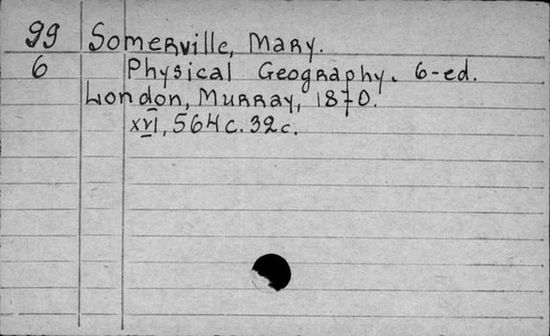 99 Somerville, Mary.
6 Physical Geography. 6-ed.
London, Murray, 1870.
xvi, 564 c. 32 c.